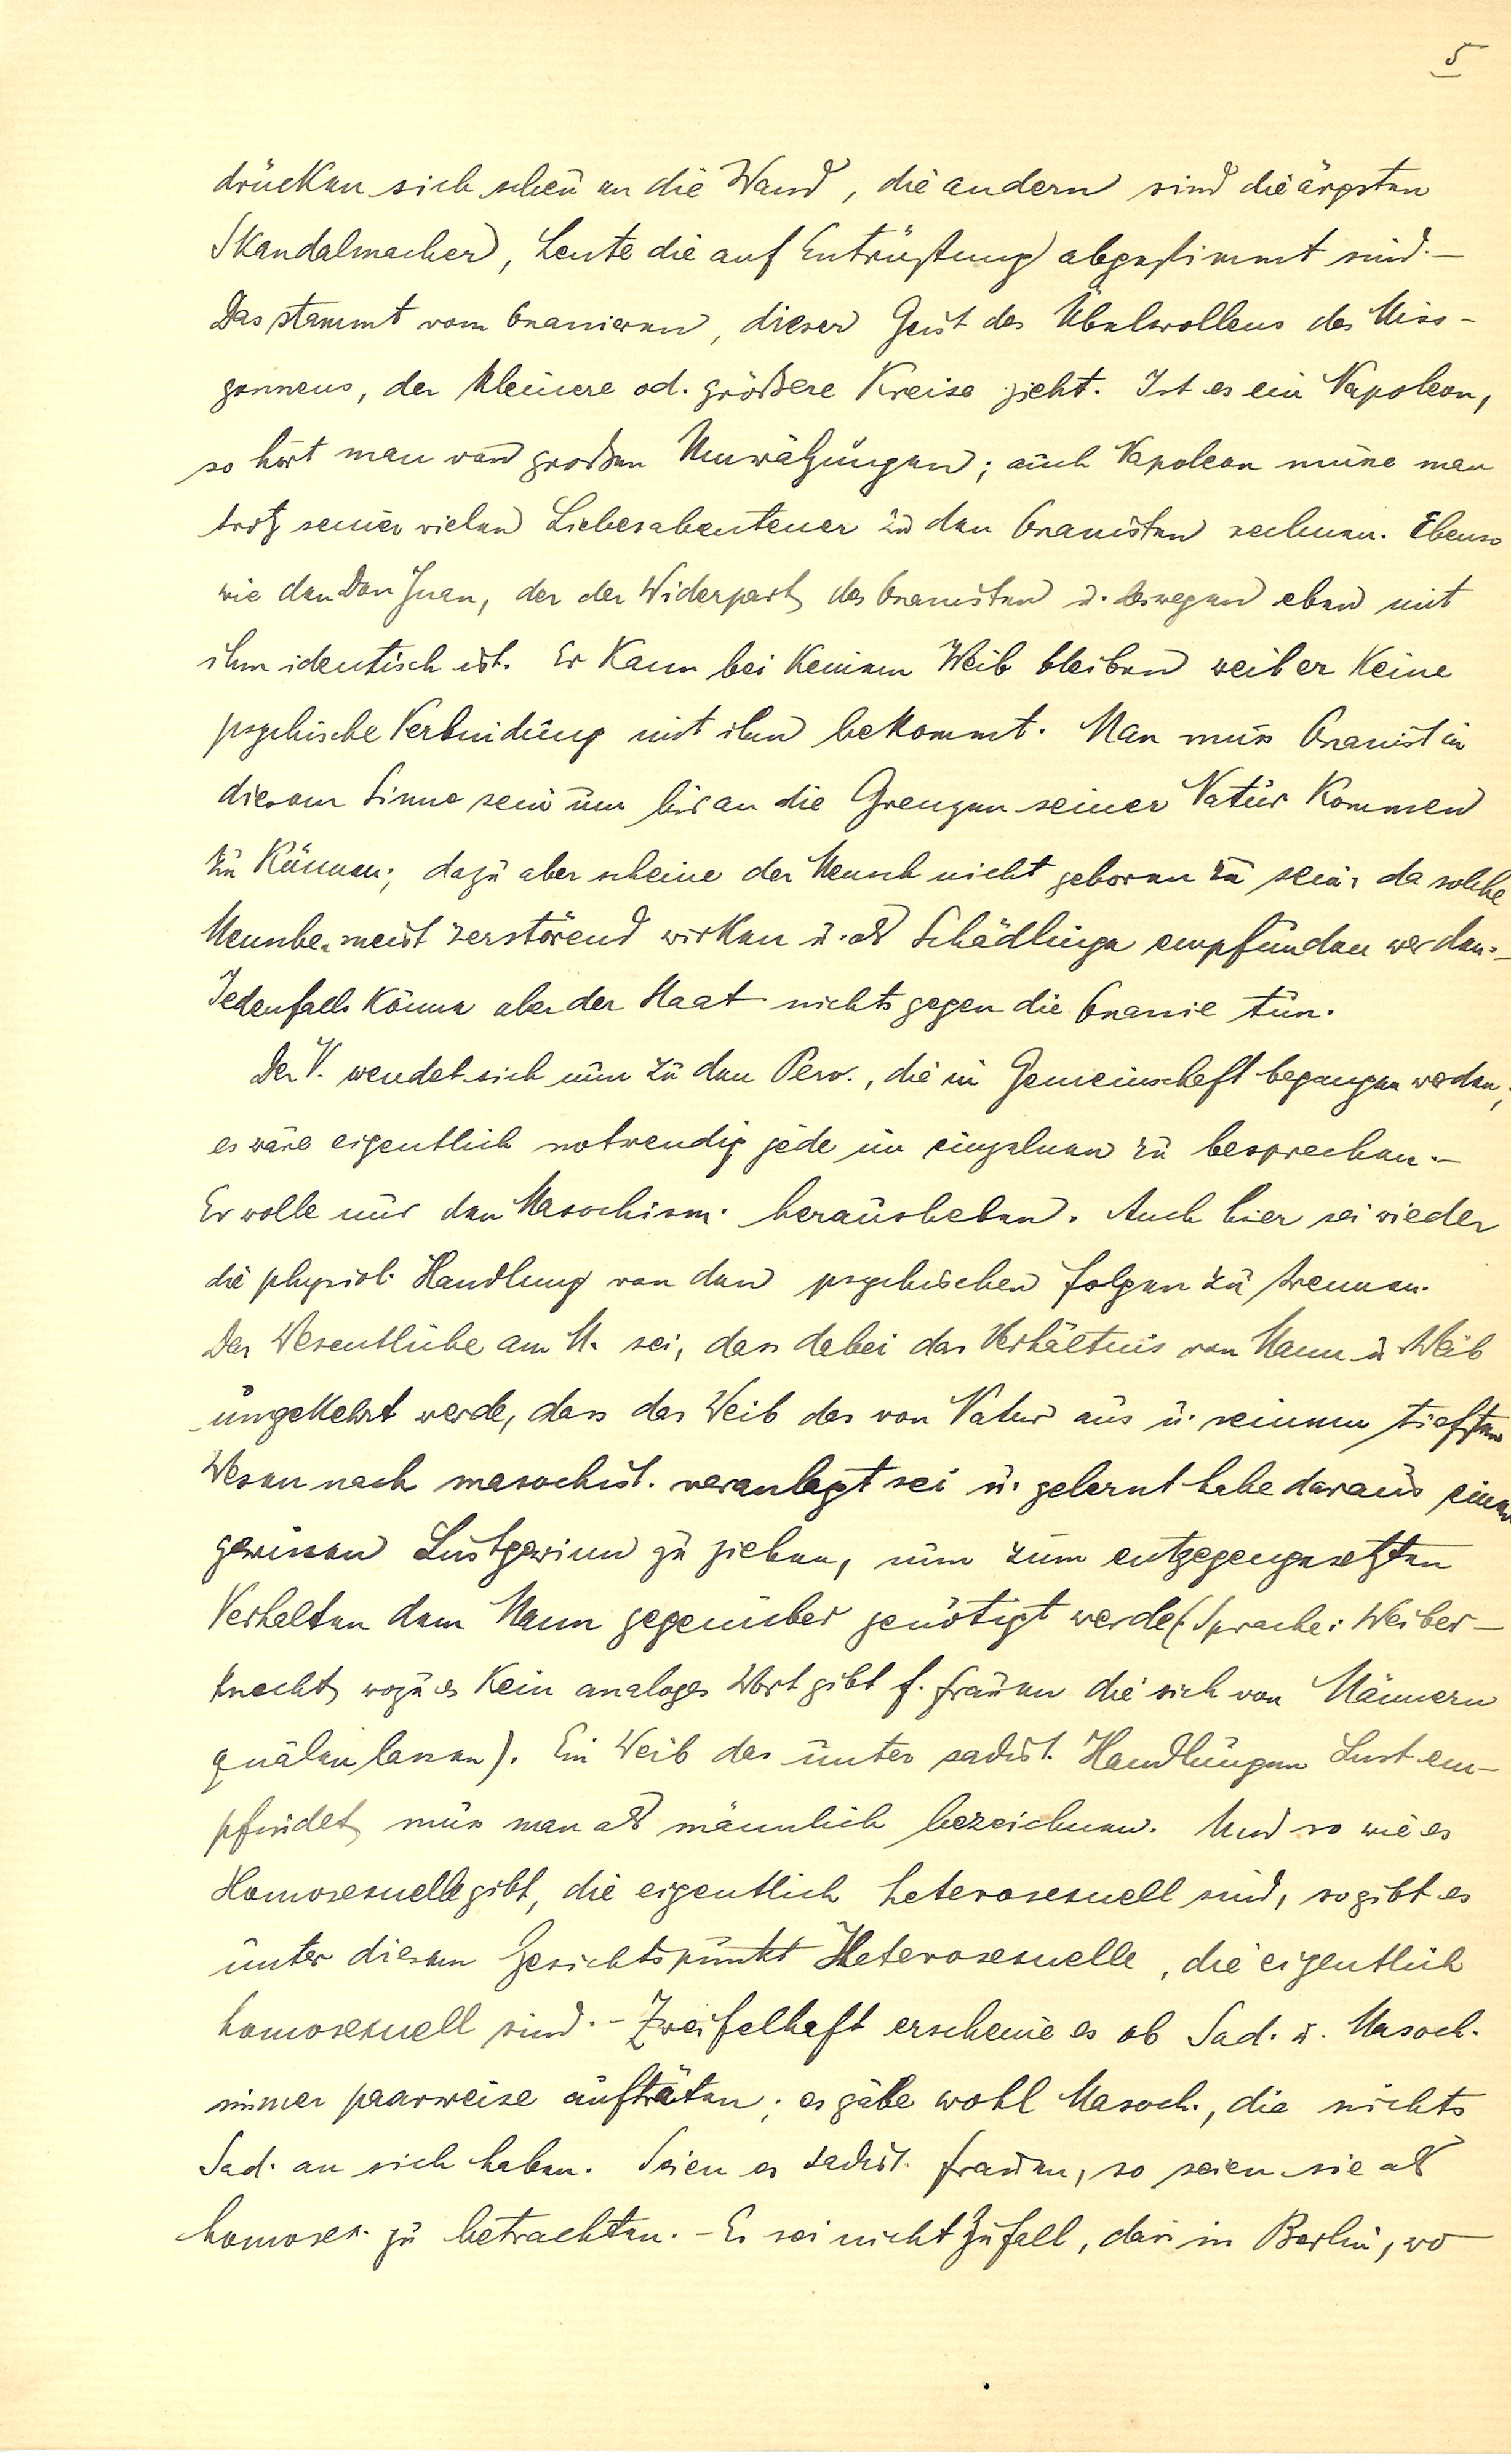 5
drücken sich scheu an die Wand, die andern sind die ärgsten
Skandalmacher, Leute die auf Entrüstung abgestimmt sind. –
Das stammt vom Onanieren, dieser Geist des Übelwollens des Miss-
gönnens, der kleinere od. größere Kreise zieht. Ist es ein Napoleon,
so hört man von großen Umwälzungen; auch Napoleon müsse man
trotz seiner vielen Liebesabenteuer zu den Onanisten rechnen. Ebenso
wie den Don Juan, der der Widerpart des Onanisten u. deswegen eben mit
ihm identisch ist. Er kann bei keinem Weib bleiben weil er keine
psychische Verbindung mit ihm bekommt. Man muss Onanist in
diesem Sinne sein um bis an die Grenzen seiner Natur kommen
zu können; dazu aber scheine der Mensch nicht geboren zu sein, da solche
meist zerstörend wirken u. als Schädlinge empfunden werden. –
Jedenfalls könne aber der Staat nichts gegen die Onanie tun.
Der V. wendet sich nun zu den Perv., die in Gemeinschaft begangen werden;
es wäre eigentlich notwendig jede im einzelnen zu besprechen. –
Er wolle nur den Masochism. herausheben. Auch hier sei wieder
die physiol. Handlung von den psychischen Folgen zu trennen.
Das Wesentliche am M. sei, dass dabei das Verhältnis von Mann u Weib
umgekehrt werde, dass das Weib das von Natur aus u. seinem tiefsten
Wesen nach masochist. veranlagt sei u. gelernt habe daraus einen
gewissen Lustgewinn zu ziehen, nun zum entgegengesetzten
Verhalten dem Mann gegenüber genötigt werde (Sprache: Weiber-
knecht, wozu es kein analoges Wort gibt f. Frauen die sich von Männern
quälen lassen). Ein Weib das unter sadist. Handlungen Lust em-
pfindet, muss man als männlich bezeichnen. Und so wie es
Homosexuelle gibt, die eigentlich heterosexuell sind, so gibt es
unter diesem Gesichtspunkt Heterosexuelle, die eigentlich
homosexuell sind. – Zweifelhaft erscheine es ob Sad. u. Masoch.
immer paarweise aufträten; es gäbe wohl Masoch., die nichts
Sad. an sich haben. Seien es sadist. Frauen, so seien sie als
homosex. zu betrachten. – Es sei nicht Zufall, dass in Berlin, wo